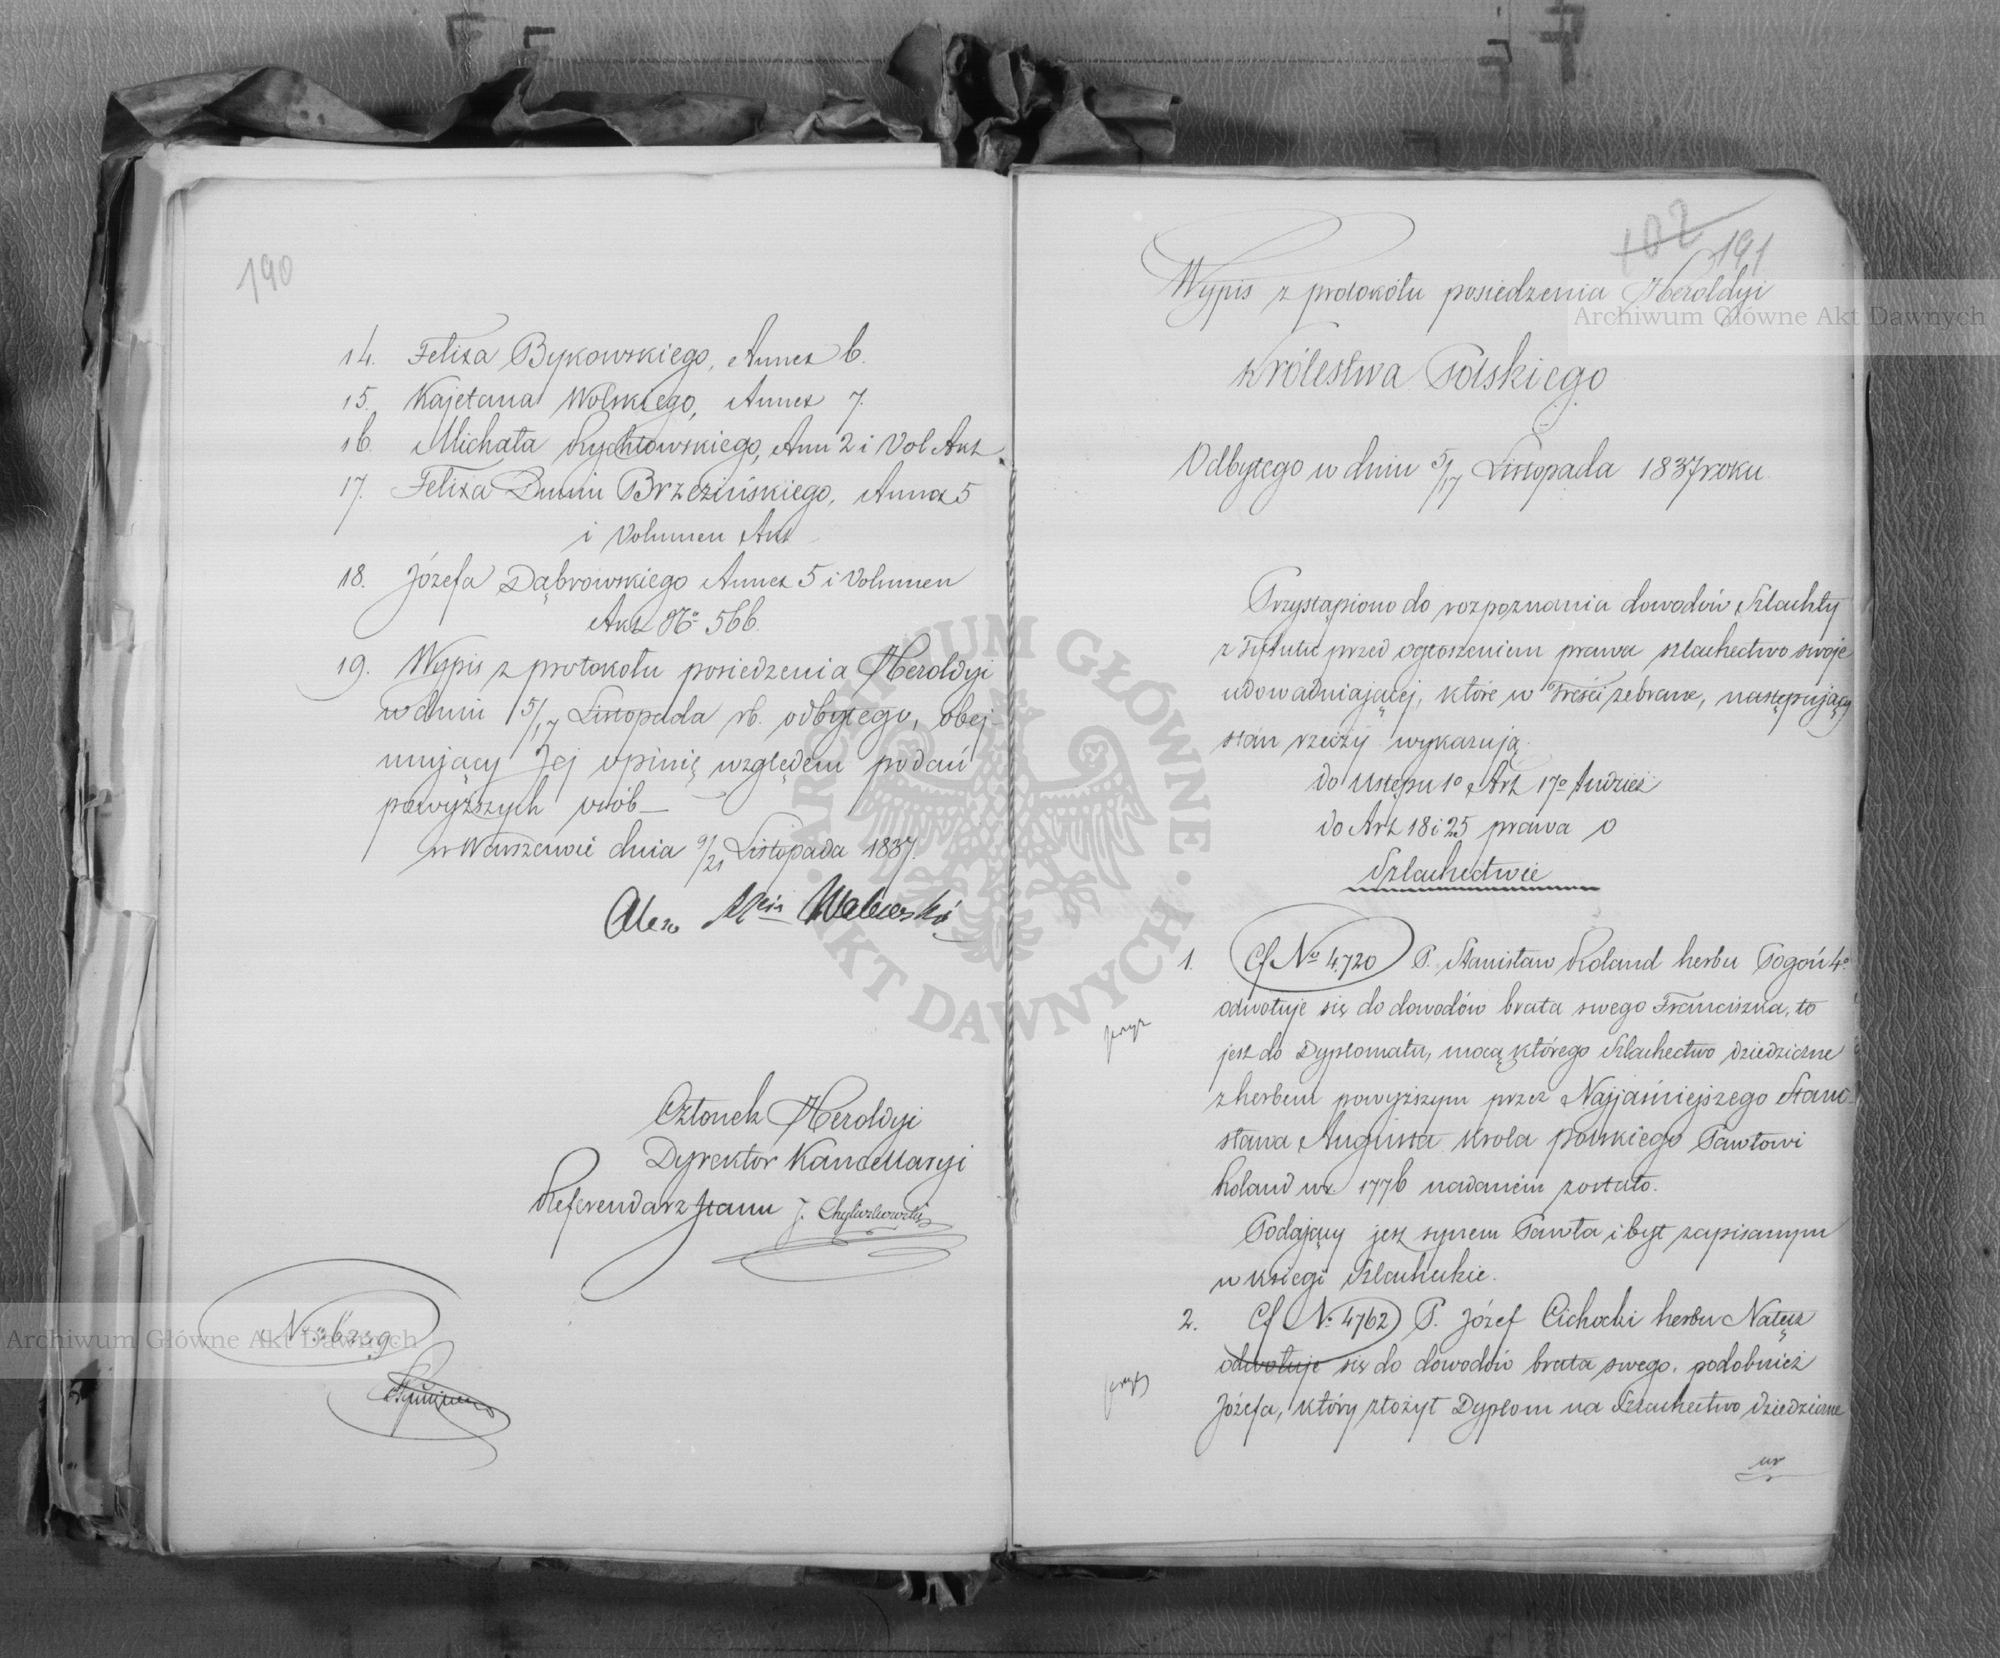 190
14. Felixa Bykowskiego, Annex 6.
15. Kajetana Wolskiego, Annex 7.
16. Michała Rychłowskiego, Ann 2 i Vol Akt
17. Felixa Dunin Brzezińskiego, Annex 5
i Volumen Akt
18. Józefa Dąbrowskiego Annex 5 i Volumen
Akt No 566.
19. Wypis z protokołu posiedzenia Heroldyi
w dniu 5/17 Listopada rb. odbytego, obej-
mujący Jej opinię względem podań
powyższych osób
w Warszawie dnia 9/21 Listopada 1837.
Alex Walewski
Członek Heroldyi
Dyrektor Kancellaryi
Referendarz Stanu J.
102 191
Wypis z protokółu posiedzenia Heroldyi
Królestwa Polskiego
Odbytego w dniu 5/17 Listopada 1837 roku.
Przystąpiono do rozpoznania dowodów Szlachty
z Tytułu przed ogłoszeniem prawa szlachectwo swoje
udowadniającej, które w treści zebrane, następujący
stan rzeczy wykazują.
do Ustępu 1o Art 17o tudzież
do Art 18 i 25 prawa o
Szlachectwie
1. Cf No 4720 P. Stanisław Roland herbu Pogoń 4o
odwołuje się do dowodów brata swego Franciszka, to
jest do Dyplomatu, mocą którego Szlachectwo dziedziczne
z herbem powyższym przez Najjaśniejszego Stani-
sława Augusta Króla polskiego Pawłowi
Roland w r. 1776 nadaniem zostało.
Podający jest synem Pawła i był zapisanym
w księgi Szlacheckie.
2. Cf No 4762 P. Józef Cichocki herbu Nałęcz
odwołuje się do dowodów brata swego, podobnież
Józefa, który złożył Dyplom na Szlachectwo dziedziczne
w
Archiwum Główne Akt Dawnych
Archiwum Główne Akt Dawnych
ARCHIWUM GŁÓWNE AKT DAWNYCH